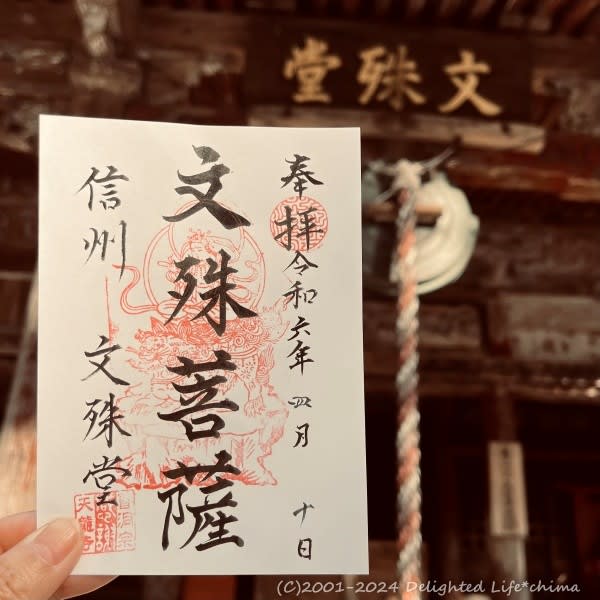 文殊堂
奉拝 令和六年 四月 十日
文殊菩薩
信州 文殊堂
(C)2001-2024 Delighted Life*chima